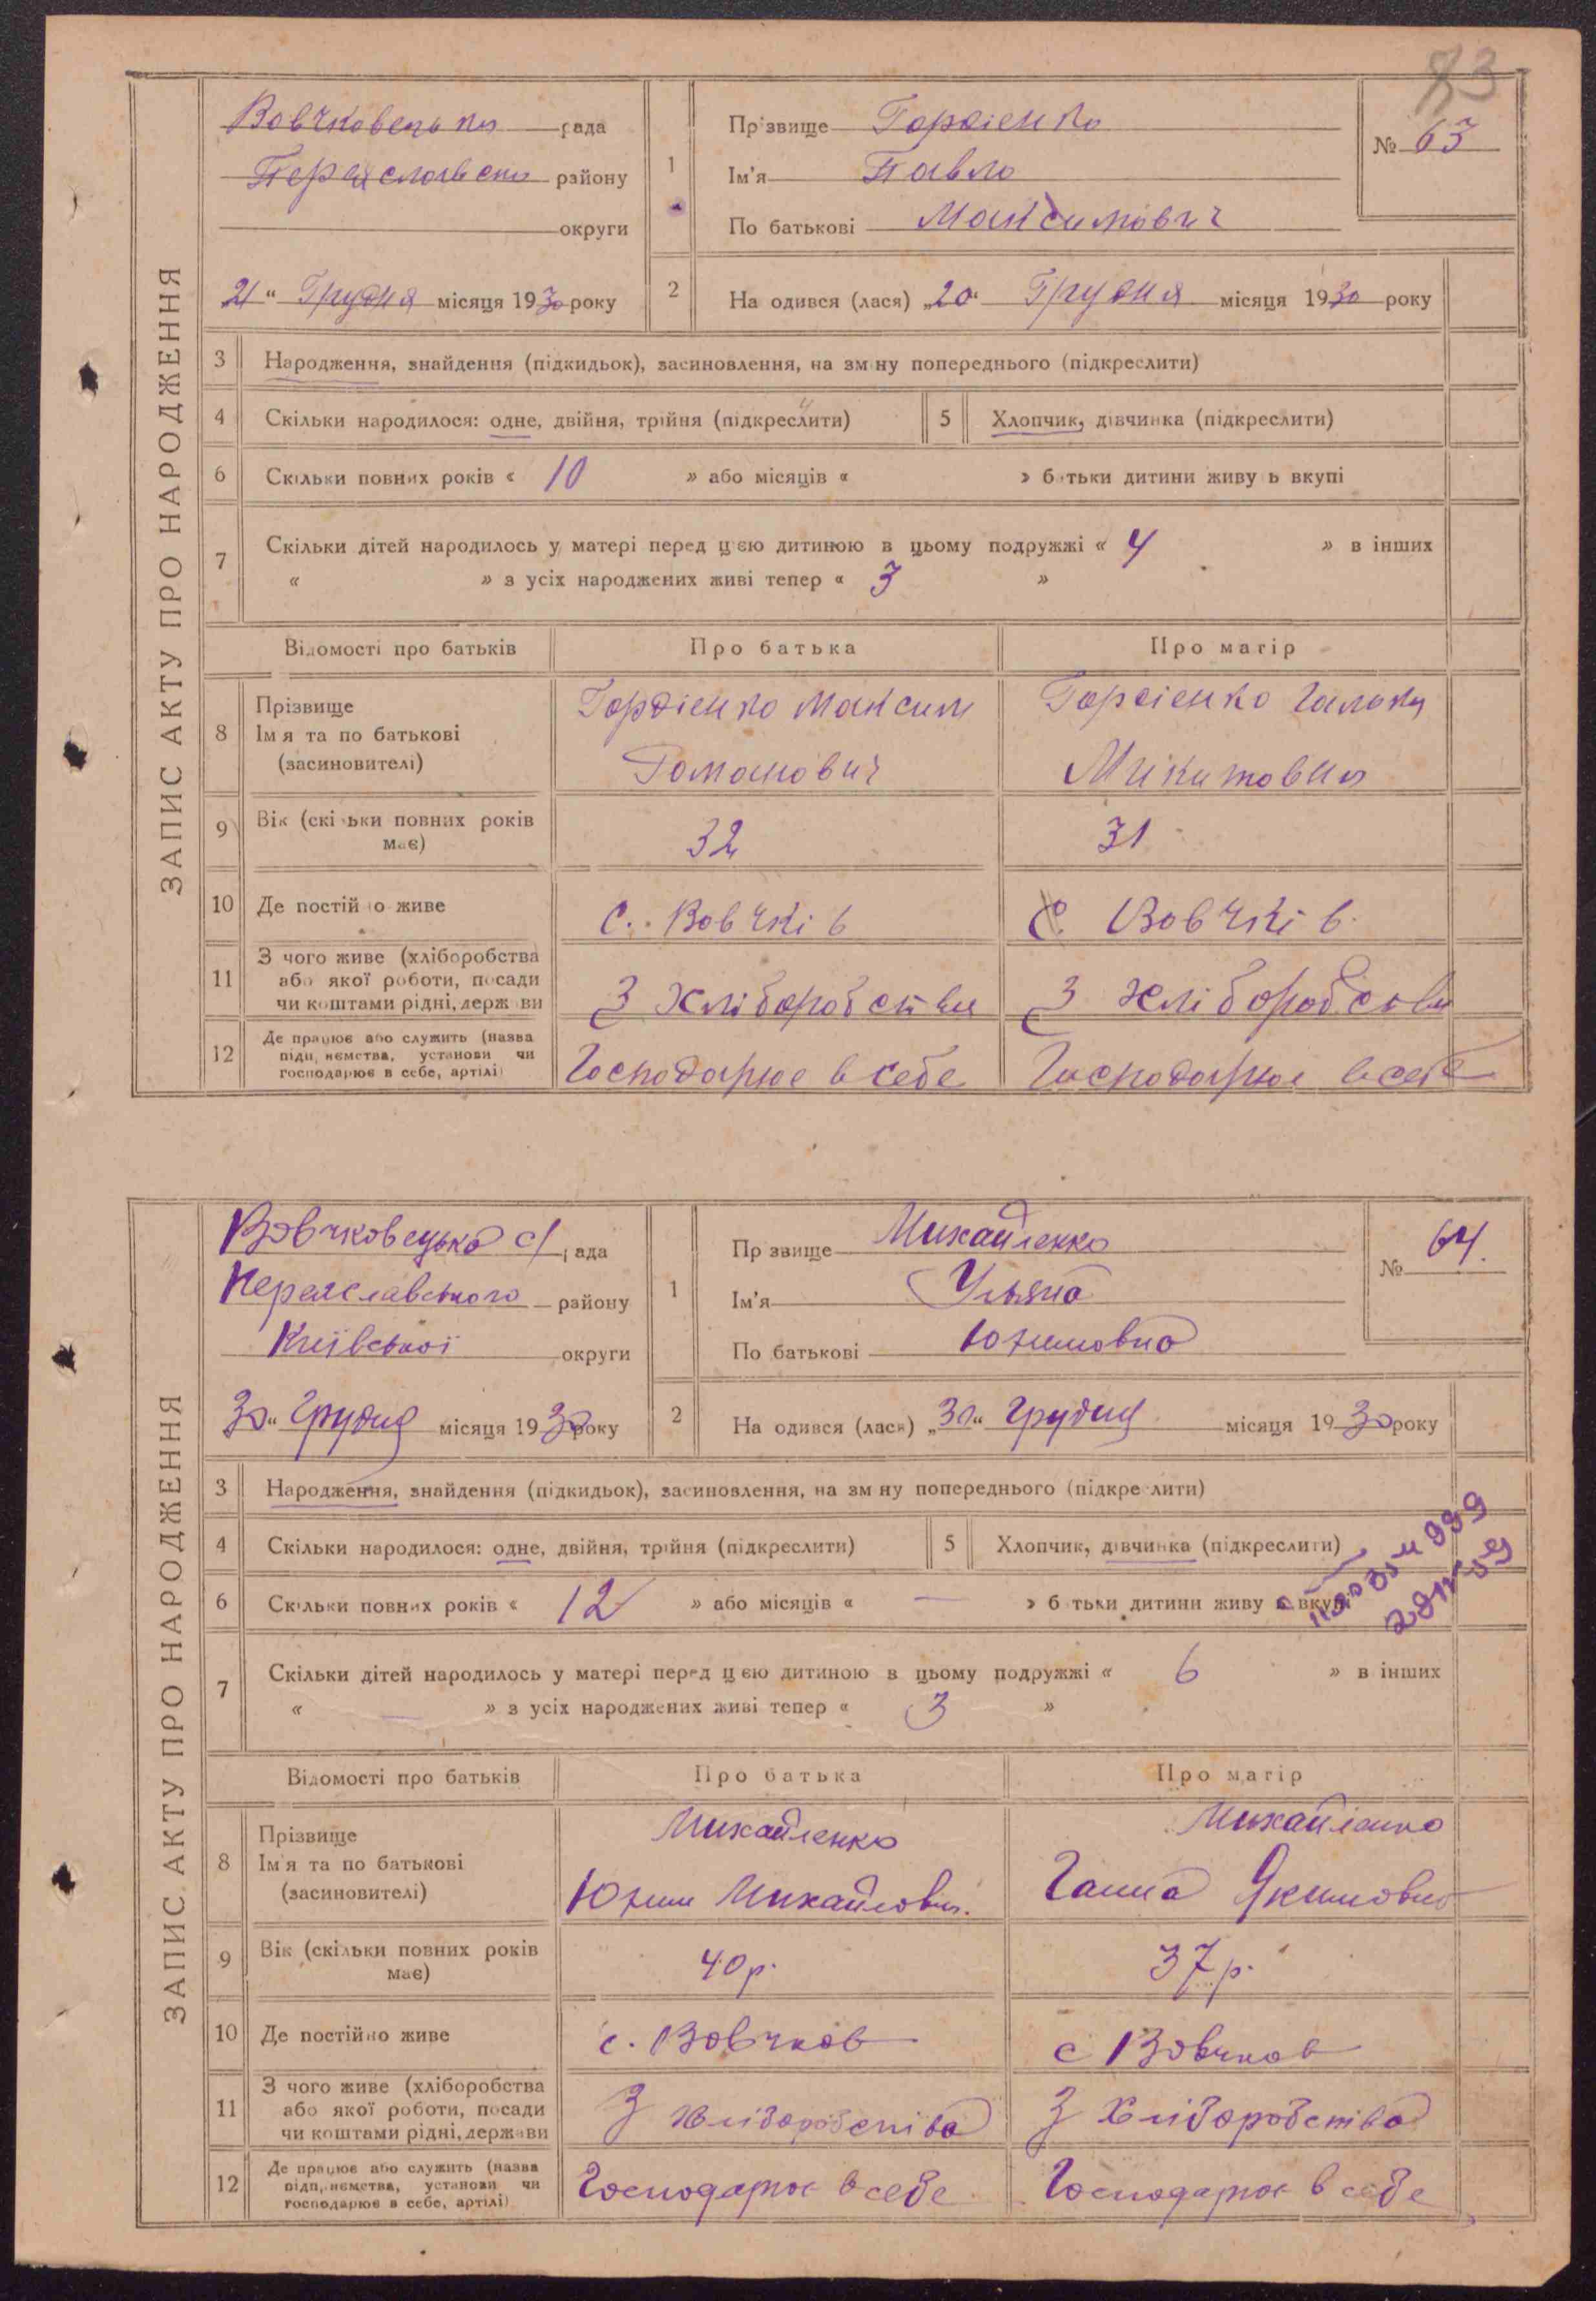 83
ЗАПИС АКТУ ПРО НАРОДЖЕННЯ
Вовчковецька рада
Переяславськ району
округи
21 " Грудня місяця 1930 року
1
Прізвище Гордіенко
Ім'я Павло
По батькові Максимович
№ 63
2 На одився (лася) „20" Грудня місяця 1930 року
3 Народження, знайдення (підкидьок), засиновлення, на зм ну попереднього (підкреслити)
4 Скільки народилося: одне, двійня, трійня (підкреслити) 5 Хлопчик, дівчинка (підкреслити)
6 Скільки повних років « 10 » або місяців « » б тьки дитини живу ь вкупі
7 Скільки дітей народилось у матері перед цєю дитиною в цьому подружжі « 4 » в інших
« » з усіх народжених живі тепер « 3 »
Відомості про батьків Про батька Про матір
8 Прізвище
Ім я та по батькові
(засиновителі)
Гордіенко Максим
Романович
Гордіенко Галька
Микитовна
9 Вік (скі ьки повних років має) 32 31
10 Де постій о живе с. Вовчків с. Вовчків.
11 З чого живе (хліборобства
або якої роботи, посади
чи коштами рідні, держ ви
З хліборобства З хліборобства
12 Де працює або служить (назва
підп, иємства, установи чи
господарює в себе, артілі)
Господарює в себе Господарює в себе
ЗАПИС АКТУ ПРО НАРОДЖЕННЯ
Вовчковецька с/ рада
Переяславського району
Київської округи
30 " Грудня місяця 1930 року
1
Пр звище Михайленко
Ім'я Ульяна
По батькові Юхимовна
№ 64.
2 На одився (лася) „30" Грудня місяця 1930 року
3 Народження, знайдення (підкидьок), засиновлення, на зм ну попереднього (підкре лити)
4 Скільки народилося: одне, двійня, трійня (підкреслити) 5 Хлопчик, дівчинка (підкреслити)
6 Скільки повних років « 12 » або місяців « — » б тьки дитини живу ь вкупі
7 Скільки дітей народилось у матері перед цєю дитиною в цьому подружжі « 6 » в інших
« — » з усіх народжених живі тепер « 3 »
Відомості про батьків Про батька Про матір
8 Прізвище
Ім'я та по батькові
(засиновителі)
Михайленко
Юхим Михайлович.
Михайленко
Ганна Якимовна
9 Вік (скільки повних років має) 40 р. 37 р.
10 Де постійно живе с. Вовчков с Вовчков
11 З чого живе (хліборобства
або якої роботи, посади
чи коштами рідні, держави
З хліборобства З хліборобства
12 Де працює або служить (назва
підп, иємства, установи чи
господарює в себе, артілі)
Господарює в себе Господарює в себе